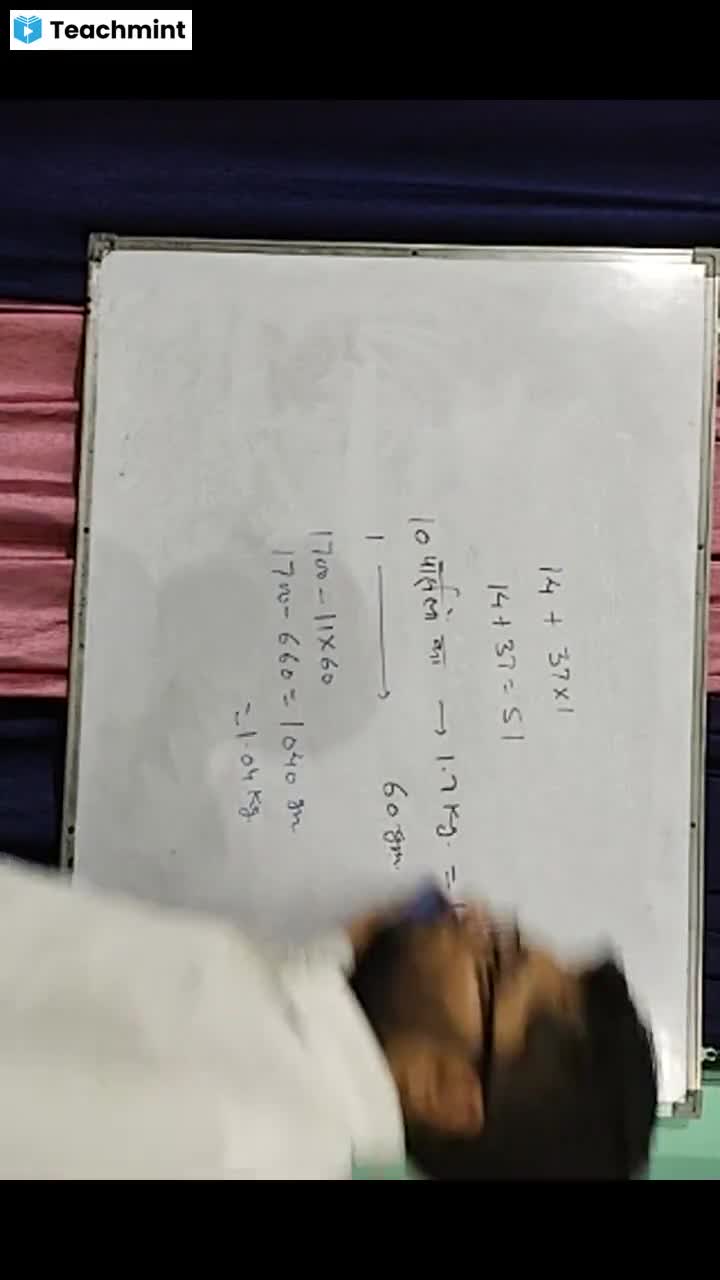 Teachmint
14 + 37×1
14 + 37 = 51
10 का → 1.7 Kg. =
1 → 60 gm.
1700 - 11×60
1700 - 660 = 1040 gm
= 1.04 Kg.